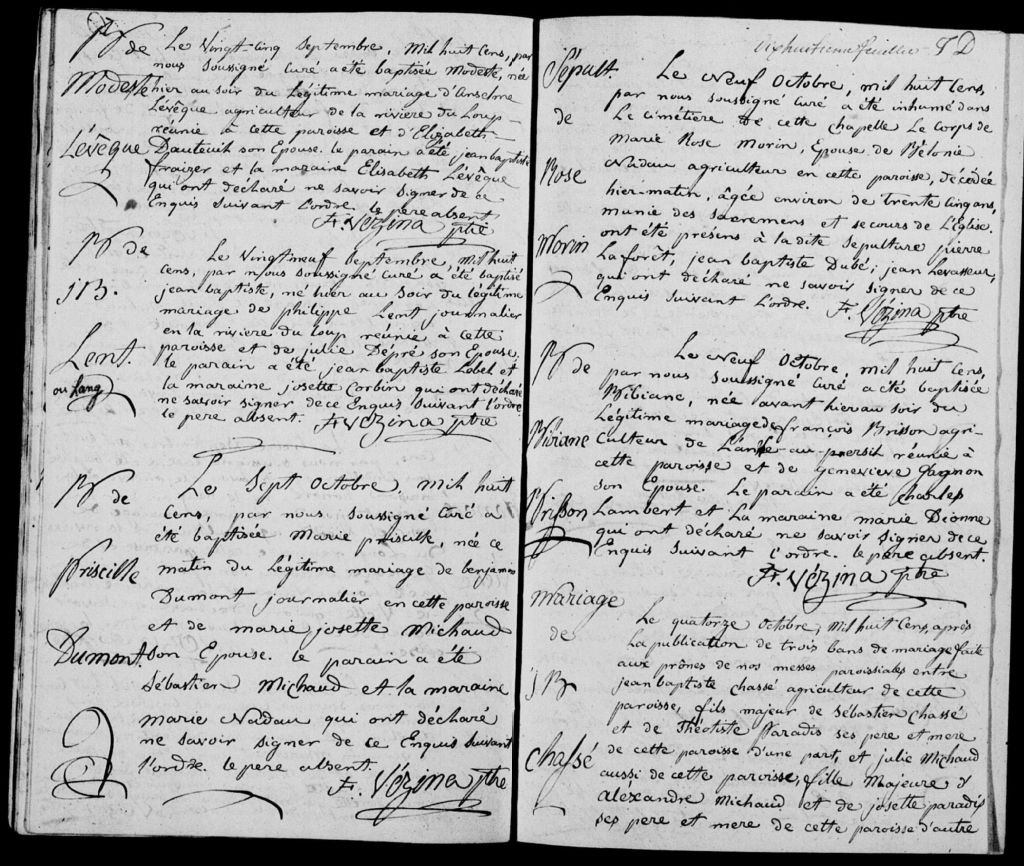 B de
Modeste
Lévêque
Le Vingt-cinq Septembre, Mil huit Cens, par
nous Soussigné Curé a été baptisée Modeste, née
hier au soir du Légitime mariage d'Anselme
Lévêque agriculteur de la riviere du Loup
réunie à cette paroisse et d'Elizabeth
Dauteuil son Epouse. le parain a été jean baptiste
fraizer et la maraine Elisabeth Lévêque
qui ont déclaré ne savoir signer de ce
Enquis Suivant l'ordre. le pere absent
F. Vézina ptre
B de
JB.
Lent.
ou Lang
Le Vingtineuf Septembre, Mil huit
Cens, par nous Soussigné Curé a été baptisé
jean baptiste, né hier au Soir du légitime
mariage de philippe Lent journalier
en la riviere du loup réunie à cette
paroisse et de julie Dépré son Epouse.
le parain a été jean baptiste Lobel et
la maraine josette Corbin qui ont déclaré
ne savoir signer de ce Enquis Suivant l'ordre
le pere absent. F. Vézina ptre
B de
Priscille
Dumont.
Le Sept Octobre, Mil huit
Cens, par nous Soussigné Curé a
été baptisée Marie priscille, née ce
matin du Légitime mariage de benjamin
Dumont journalier en cette paroisse
et de marie josette Michaud
son Epouse. le parain a été
Sébastien Michaud et la maraine
marie Nadau qui ont déclaré
ne savoir signer de ce Enquis Suivant
l'ordre. le pere absent.
F. Vézina ptre
Dixhuitieme feuillet
Sépult.
de
Rose
Morin
Le Neuf Octobre, mil huit Cens,
par nous soussigné Curé a été inhumé dans
Le Cimétière De cette Chapelle Le Corps de
Marie Rose Morin, Epouse de Bélonie
Nadau agriculteur en cette paroisse, décédée
hier-matin, âgée environ de trente cinq ans,
munie des Sacremens et secours de L'Eglise.
ont été présens à la dite Sépulture pierre
Laforêt, jean baptiste Dubé, jean Levasseur,
qui ont déclaré ne savoir signer de ce
Enquis Suivant L'ordre. F. Vézina ptre
B de
Bibiane
Brisson
Le Neuf Octobre, mil huit Cens,
par nous Soussigné Curé a été baptisée
Bibiane, née avant hier au soir du
Légitime mariage de françois Brisson agri-
Culteur de L'anse-au-persil réunie à
cette paroisse et de Genevieve gagnon
son Epouse. Le parain a été Charles
Lambert et La maraine marie Dionne
qui ont déclaré ne savoir signer de ce
Enquis Suivant l'ordre. le pere absent.
F. Vézina ptre
Mariage
de
JB
Chassé
Le quatorze Octobre, Mil huit Cens, après
La publication de trois bans de mariage faite
aux prônes de nos messes paroissiales entre
jean baptiste chassé agriculteur de cette
paroisse, fils majeur de Sébastien Chassé
et de Théotiste Paradis ses pere et mere
de cette paroisse d'une part, et julie Michaud
aussi de cette paroisse, fille Majeure d'
Aléxandre Michaud et de josette paradis
ses pere et mere de cette paroisse d'autre